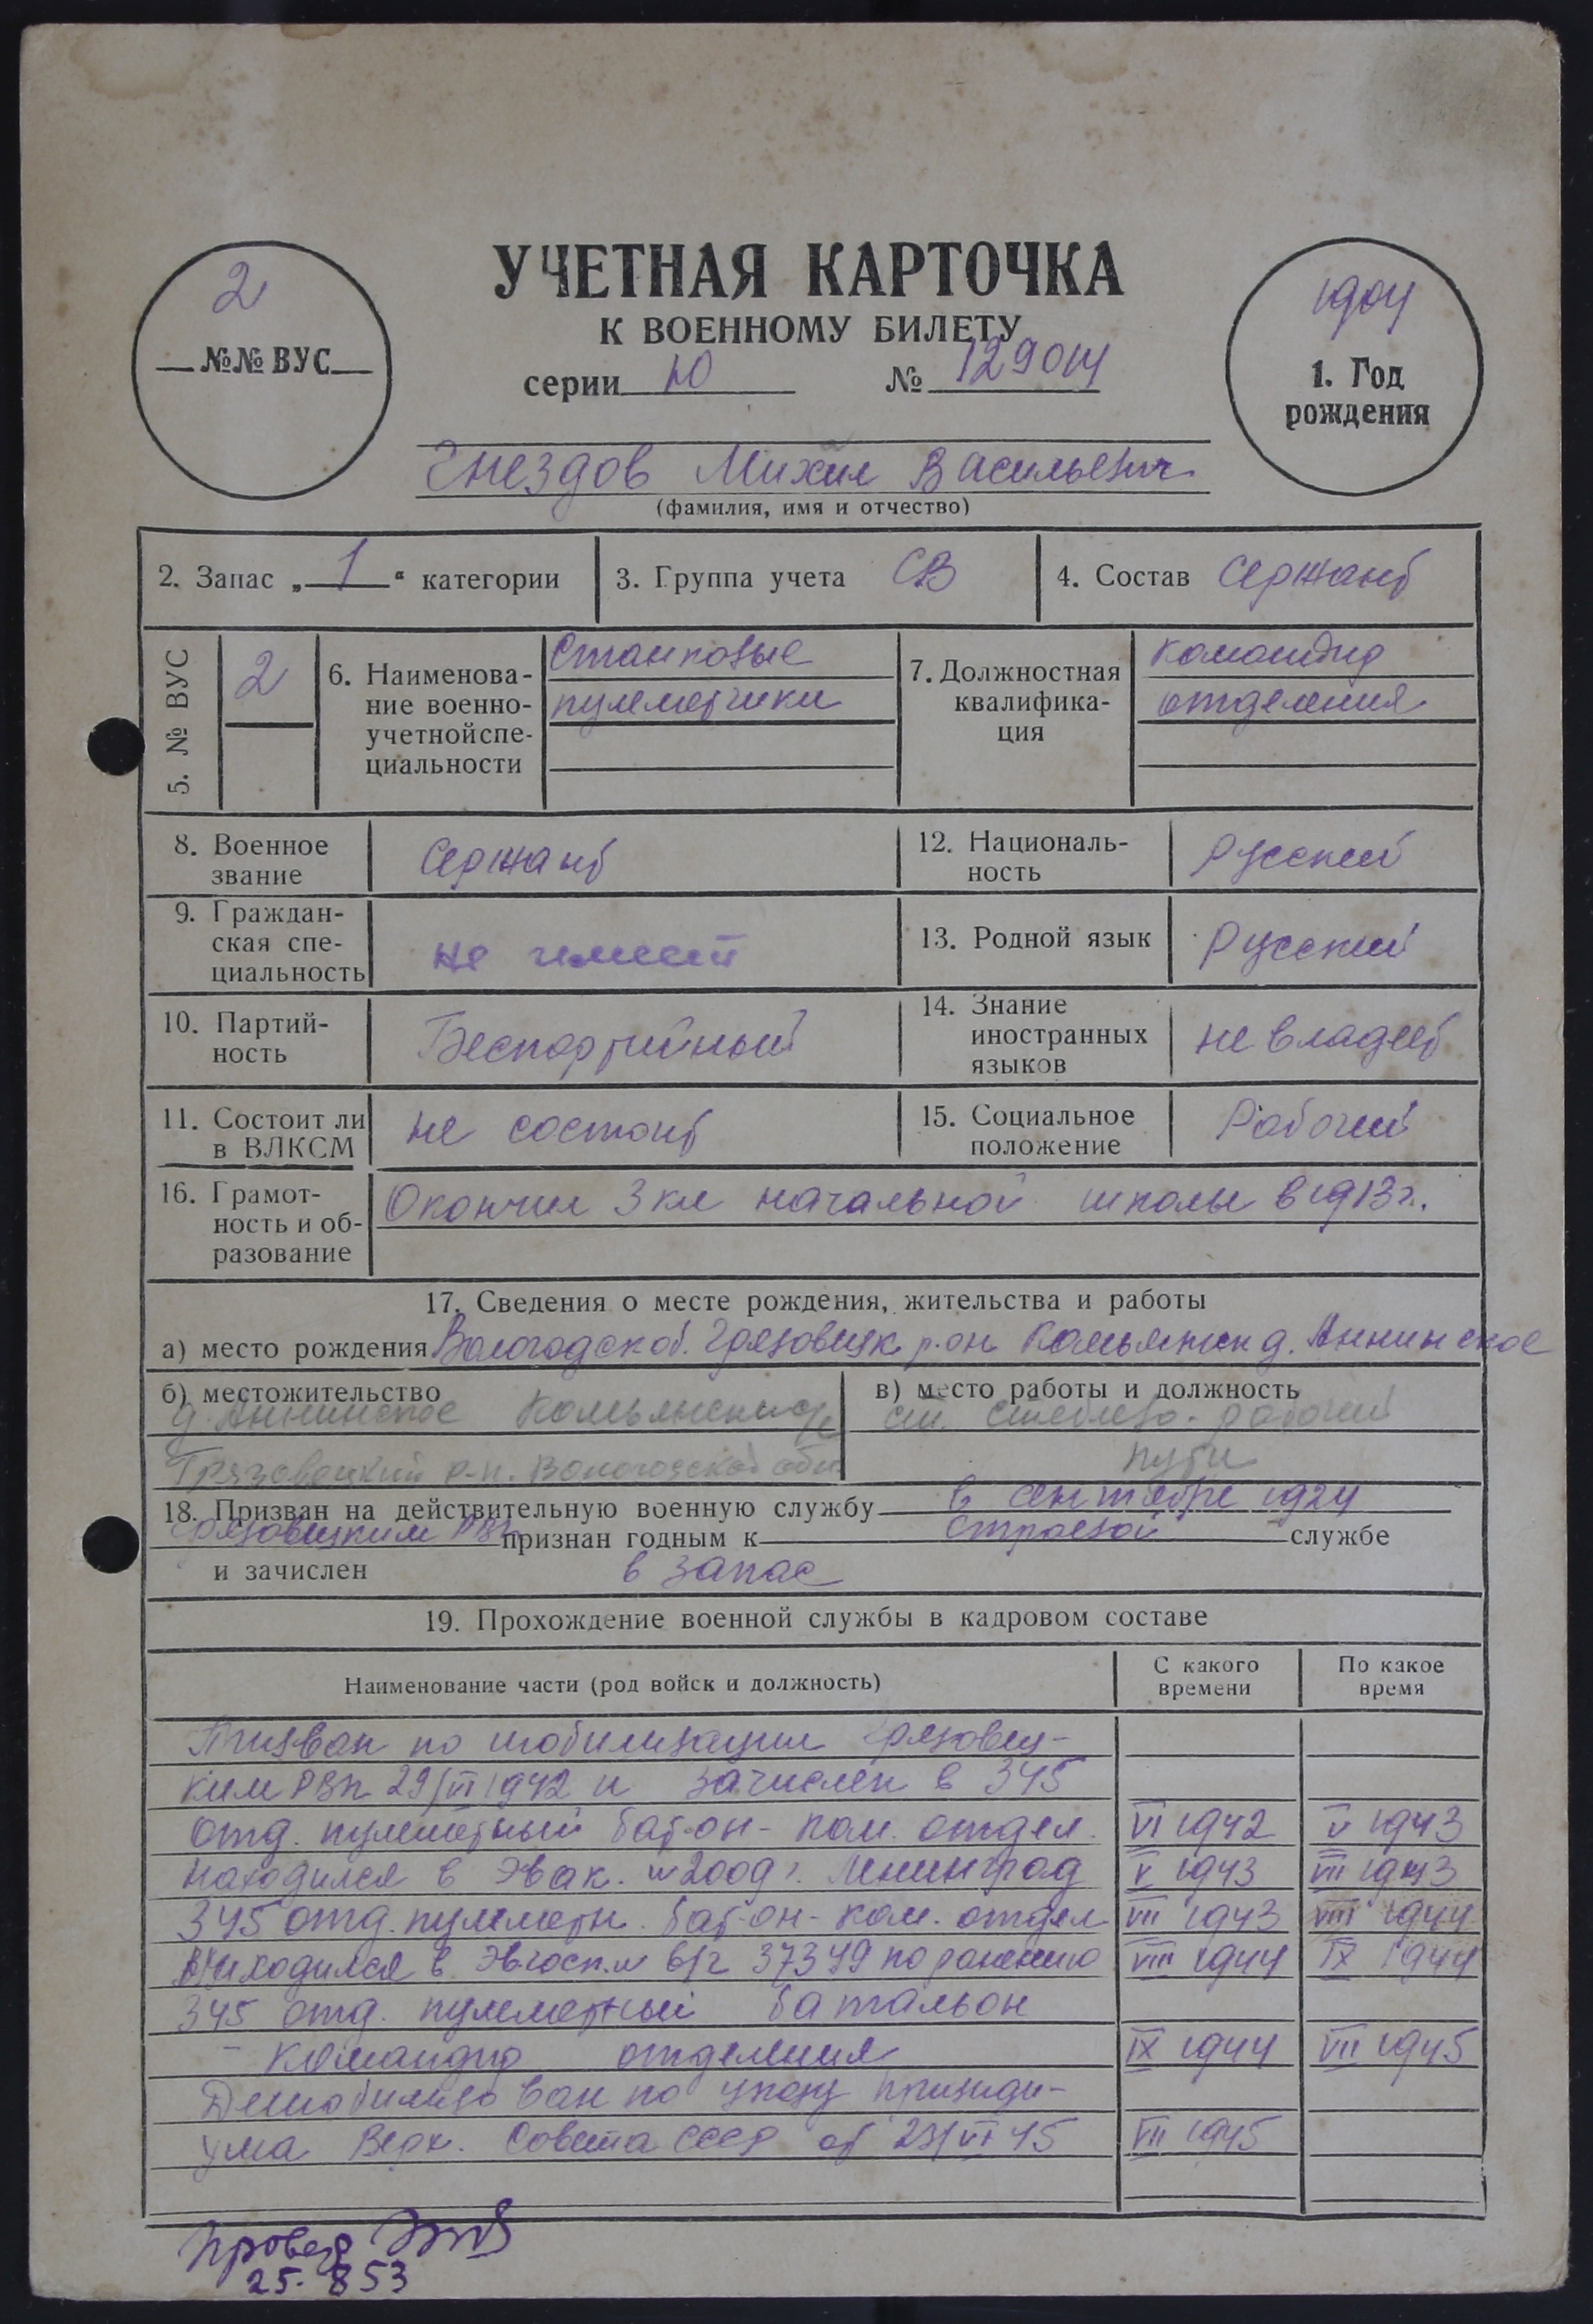 УЧЕТНАЯ КАРТОЧКА
К ВОЕННОМУ БИЛЕТУ
серии Ю № 129014
2
№№ ВУС
1904
1. Год
рождения
Гнездов Михаил Васильевич
(фамилия, имя и отчество)
2. Запас „ 1 “ категории
3. Группа учета СВ
4. Состав Сержант
5. № ВУС
2
6. Наименова-
ние военно-
учетной спе-
циальности
Станковые
пулеметчики
7. Должностная
квалифика-
ция
командир
отделения
8. Военное
звание
Сержант
12. Националь-
ность
Русский
9. Граждан-
ская спе-
циальность
не имеет
13. Родной язык
Русский
10. Партий-
ность
Беспартийный
14. Знание
иностранных
языков
не владеет
11. Состоит ли
в ВЛКСМ
не состоит
15. Социальное
положение
Рабочий
16. Грамот-
ность и об-
разование
Окончил 3 кл начальной школы в 1913 г.
17. Сведения о месте рождения, жительства и работы
а) место рождения Вологодск об. Грязовецк р-он Комьянск д. Аннинское
б) местожительство
д. Аннинское Комьянский с/с
Грязовецкий р-н. Вологодской обл
в) место работы и должность
ст. рабочий
пути
18. Призван на действительную военную службу в сентябре 1924
Грязовецким РВК признан годным к строевой службе
и зачислен в запас
19. Прохождение военной службы в кадровом составе
Наименование части (род войск и должность)
С какого
времени
По какое
время
Призван по мобилизации Грязовец-
ким РВК 29/VI 1942 и зачислен в 345
отд. пулеметный бат-он - ком. отдел. VI 1942 V 1943
Находился в Эвак. № 2009 г. Ленинград V 1943 VII 1943
345 отд. пулеметн. бат-он - ком. отдел VII 1943 VIII 1944
Находился в Эвгосп. № в/ч 37349 по ранению VIII 1944 IX 1944
345 отд. пулеметный батальон
- командир отделения IX 1944 VII 1945
Демобилизован по указу президи-
ума Верх. Совета СССР от 23/VI 45 VII 1945
Провер
25. 8 53